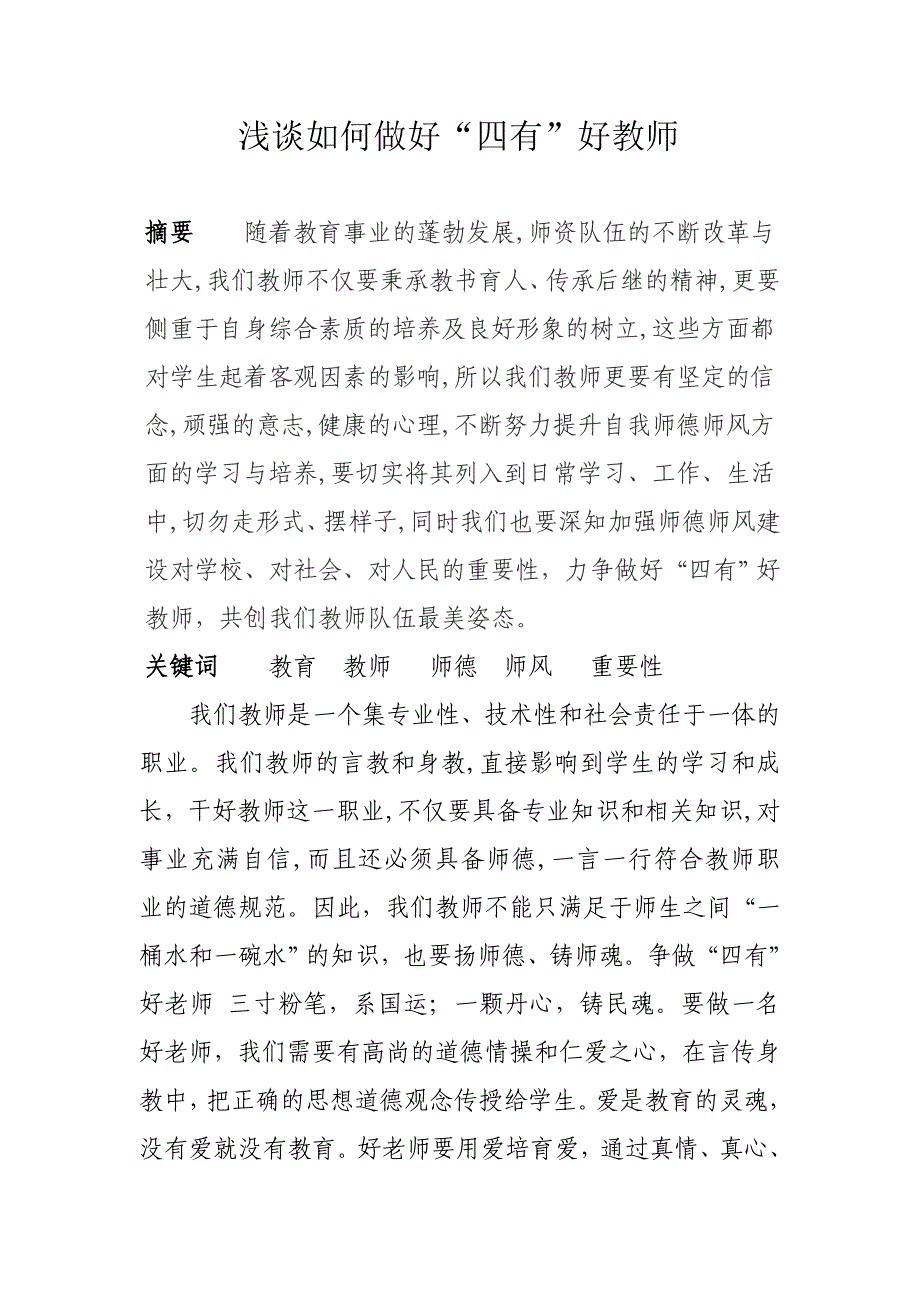 浅谈如何做好“四有”好教师
摘要 随着教育事业的蓬勃发展,师资队伍的不断改革与
壮大,我们教师不仅要秉承教书育人、传承后继的精神,更要
侧重于自身综合素质的培养及良好形象的树立,这些方面都
对学生起着客观因素的影响,所以我们教师更要有坚定的信
念,顽强的意志,健康的心理,不断努力提升自我师德师风方
面的学习与培养,要切实将其列入到日常学习、工作、生活
中,切勿走形式、摆样子,同时我们也要深知加强师德师风建
设对学校、对社会、对人民的重要性，力争做好“四有”好
教师，共创我们教师队伍最美姿态。
关键词 教育 教师 师德 师风 重要性
我们教师是一个集专业性、技术性和社会责任于一体的
职业。我们教师的言教和身教,直接影响到学生的学习和成
长，干好教师这一职业,不仅要具备专业知识和相关知识,对
事业充满自信,而且还必须具备师德,一言一行符合教师职
业的道德规范。因此，我们教师不能只满足于师生之间“一
桶水和一碗水”的知识，也要扬师德、铸师魂。争做“四有”
好老师 三寸粉笔，系国运；一颗丹心，铸民魂。要做一名
好老师，我们需要有高尚的道德情操和仁爱之心，在言传身
教中，把正确的思想道德观念传授给学生。爱是教育的灵魂，
没有爱就没有教育。好老师要用爱培育爱，通过真情、真心、